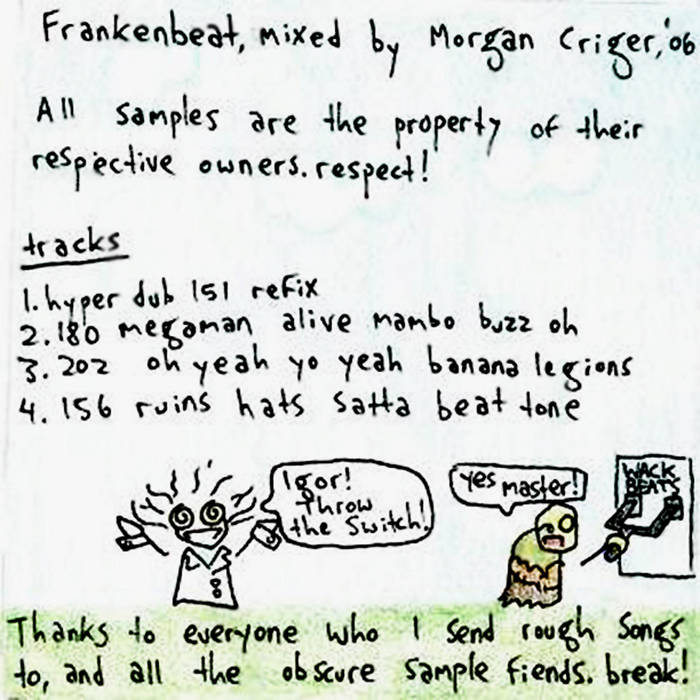 Frankenbeat, mixed by Morgan Criger,'06
All samples are the property of their
respective owners. respect!
tracks
1. hyper dub 151 refix
2. 180 megaman alive mambo buzz oh
3. 202 oh yeah yo yeah banana legions
4. 156 ruins hats satta beat tone
Igor!
Throw
the Switch!
yes master!
WACK
BEATS
Thanks to everyone who I send rough songs
to, and all the obscure sample fiends. break!